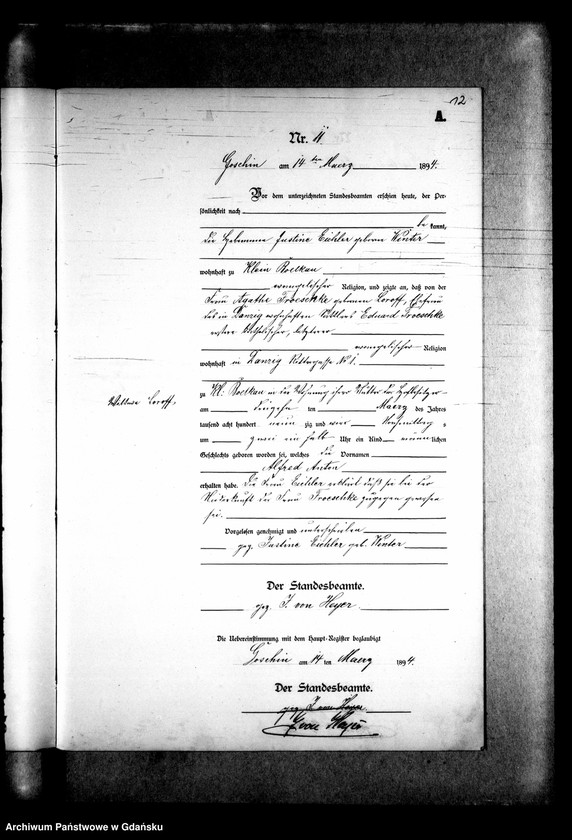 12
A.
Nr. 11.
Goschin am 14 ten Maerz 1894.
Vor dem unterzeichneten Standesbeamten erschien heute, der Per-
sönlichkeit nach
be kannt,
die Hebamme Justine Eichler geborene Winter
wohnhaft zu Klein Boelkau
evangelischer Religion, und zeigte an, daß von der
Frau Agathe Troeschke geborenen Loroff, Ehefrau
des in Danzig wohnhaften Eduard Troeschke
erstere katholischer, letzterer
evangelischer Religion
wohnhaft in Danzig Rittergasse No 1.
zu Kl. Boelkau in der Wohnung ihrer Mutter der Hofbesitzer
Wittwe Loroff,
am dreizehn ten Maerz des Jahres
tausend acht hundert neun zig und vier Nachmittags
um zwei ein halb Uhr ein Kind männ lichen
Geschlechts geboren worden sei, welches die Vornamen
Alfred Anton
erhalten habe. Die Frau Eichler erklärt daß sie bei der
Niederkunft der Frau Troeschke zugegen gewesen
sei.
Vorgelesen, genehmigt und unterschrieben
gez. Justine Eichler geb. Winter
Der Standesbeamte.
gez. J. von Heyer
Die Uebereinstimmung mit dem Haupt-Register beglaubigt
Goschin am 14 ten Maerz 1894.
Der Standesbeamte.
gez. J. von Heyer
J. von Heyer
Archiwum Państwowe w Gdańsku